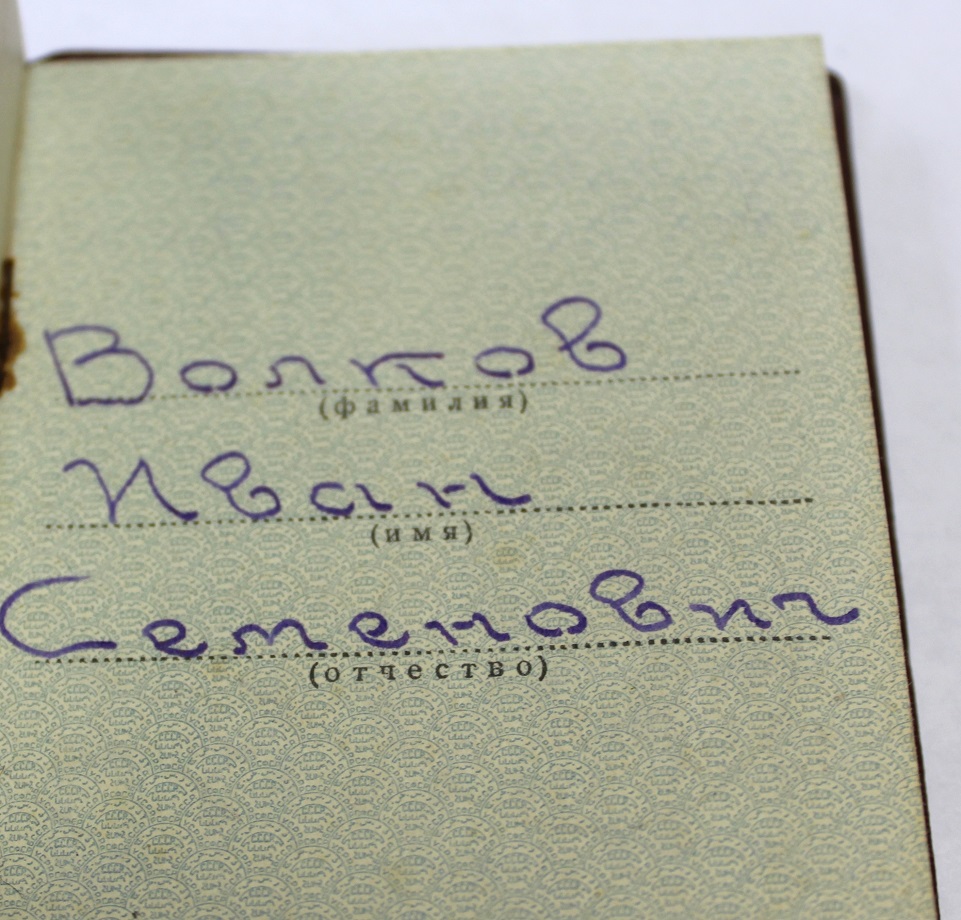 Волков
(фамилия)
Иван
(имя)
Семенович
(отчество)